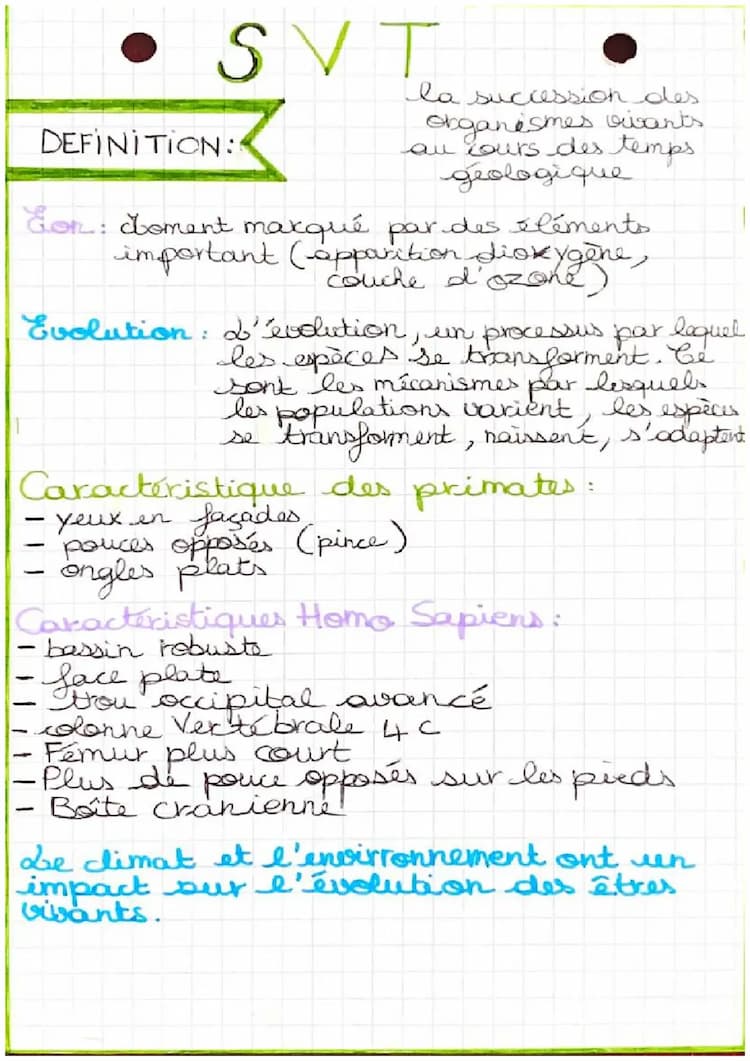 SVT
DEFINITION:
la succession des
organismes vivants
au cours des temps
géologique
Eon : Moment marqué par des éléments
important (apparition dioxygène,
couche d'ozone)
Evolution : L'évolution, un processus par lequel
les espèces se transforment. Ce
sont les mécanismes par lesquels
les populations varient, les espèces
se transforment, naissent, s'adaptent
Caractéristique des primates :
- yeux en façades
- pouces opposés (pince)
- ongles plats
Caractéristiques Homo Sapiens :
- bassin robuste
- face plate
- trou occipital avancé
- colonne Vertébrale 4 C
- Fémur plus court
- Plus de pouce opposés sur les pieds
- Boîte cranienne
Le climat et l'envoirronnement ont un
impact sur l'évolution des êtres
vivants.